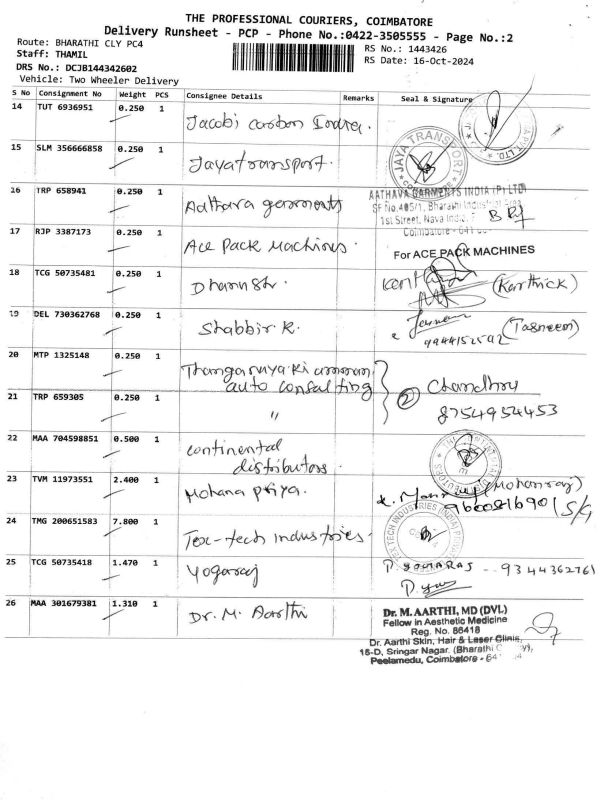 THE PROFESSIONAL COURIERS, COIMBATORE
Delivery Runsheet - PCP - Phone No.:0422-3505555 - Page No.:2
Route: BHARATHI CLY PC4
RS No.: 1443426
Staff: THAMIL
RS Date: 16-Oct-2024
DRS No.: DCJB144342602
Vehicle: Two Wheeler Delivery
S No Consignment No Weight PCS Consignee Details Remarks Seal & Signature
14 TUT 6936951 0.250 1
Jacobi carbon India.
15 SLM 356666858 0.250 1
Jayatransport.
JAYA TRANSPORT
16 TRP 658941 0.250 1
Aathava garments
AATHAVA GARMENTS INDIA (P) LTD
SF No.405/1, Bharathi Industrial Area
1st Street, Nava India,
Coimbatore - 641
17 RJP 3387173 0.250 1
Ace Pack Machines.
For ACE PACK MACHINES
18 TCG 50735481 0.250 1
(Karthick)
19 DEL 730362768 0.250 1
Shabbir K.
(Tasneem)
9944152592
20 MTP 1325148 0.250 1
auto consalting
21 TRP 659305 0.250 1
"
② Chandhru
8754954453
22 MAA 704598851 0.500 1
continental
distributors.
23 TVM 11973551 2.400 1
Mohana Priya.
(Mohanraj)
24 TMG 200651583 7.800 1
Tex-tech industries.
TEX-TECH INDUSTRIES (INDIA)
25 TCG 50735418 1.470 1
Yogaraj
26 MAA 301679381 1.310 1
Dr. M. Aarthi
Dr. M. AARTHI, MD (DVL)
Fellow in Aesthetic Medicine
Reg. No. 86418
Dr. Aarthi Skin, Hair & Laser Clinic,
Peelamedu, Coimbatore - 64